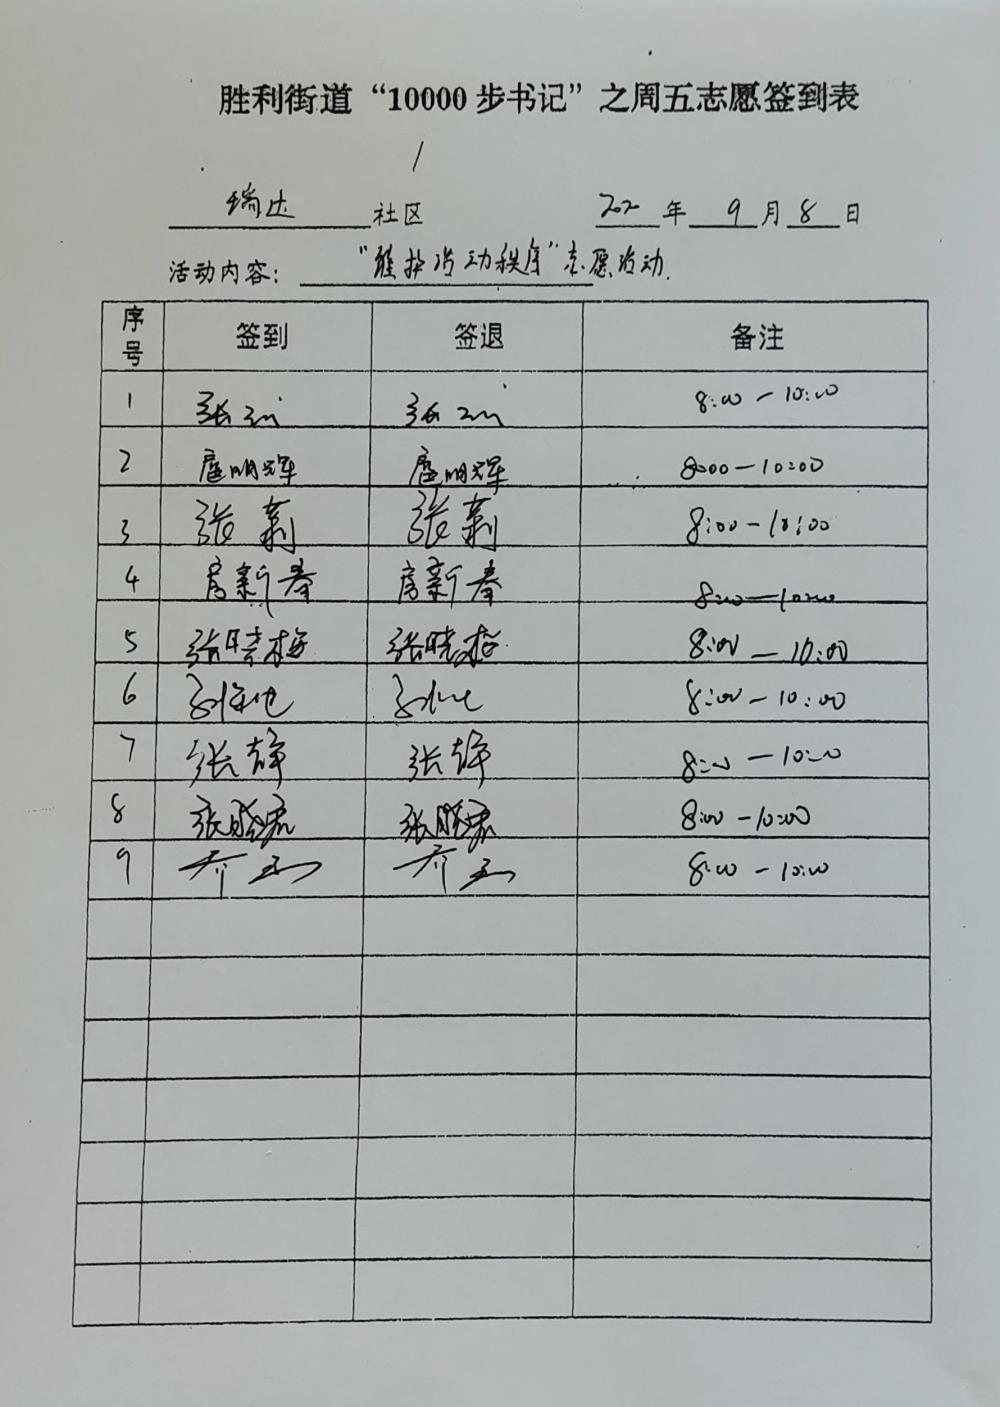 胜利街道“10000步书记”之周五志愿签到表
瑞达 社区 2020 年 9 月 8 日
活动内容： “维护活动秩序”志愿活动.
序号 签到 签退 备注
1 8:00-10:00
2 明辉 明辉 8:00-10:00
3 张莉 张莉 8:00-10:00
4 房新春 房新春 8:00-10:00
5 张晓梅 张晓梅 8:00-10:00
6 8:00-10:00
7 张静 张静 8:00-10:00
8 张晓君 张晓君 8:00-10:00
9 乔玉 乔玉 8:00-10:00